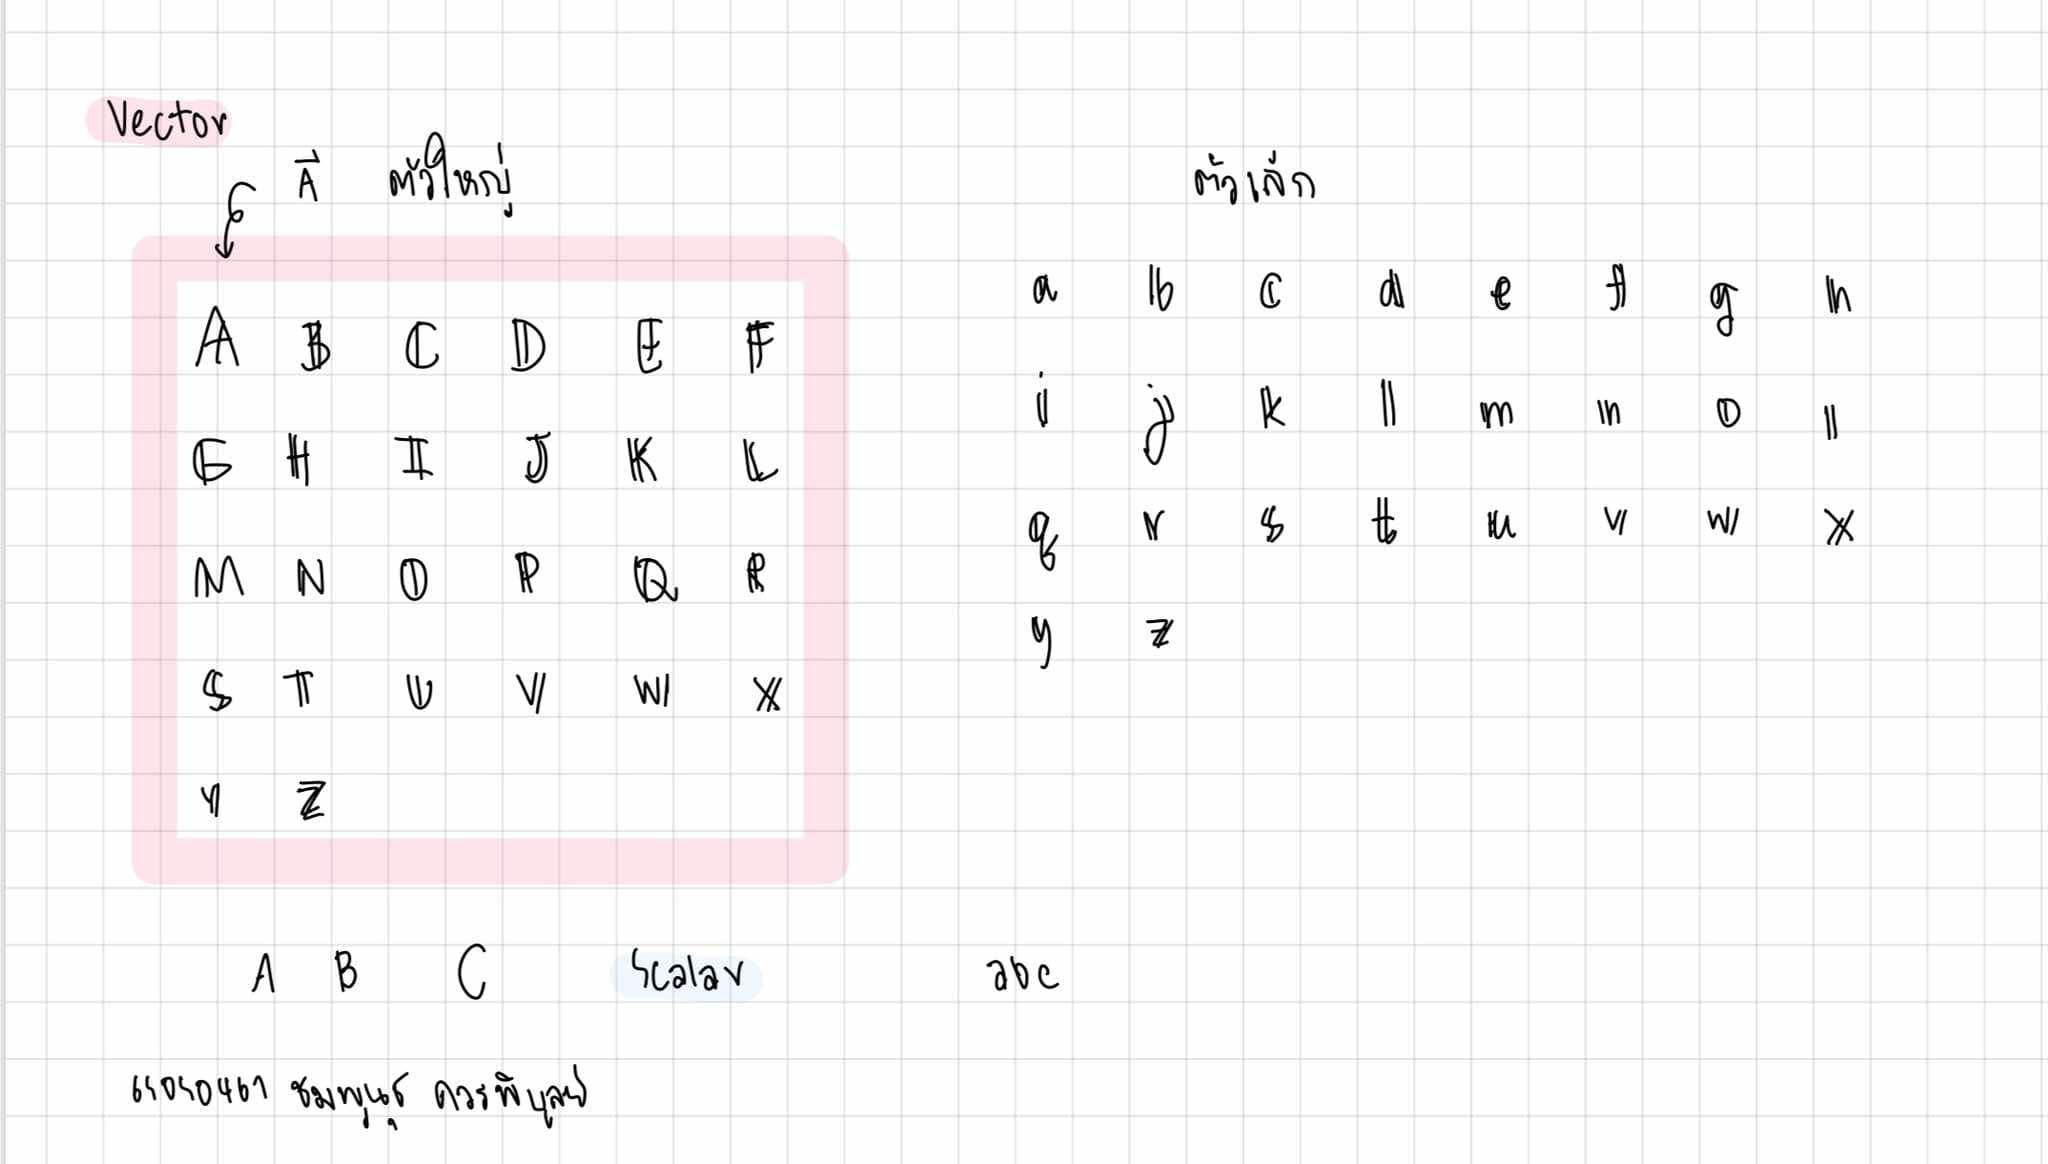 Vector
A⃗ ตัวใหญ่
A B C D E F
G H I J K L
M N O P Q R
S T U V W X
Y Z
ตัวเล็ก
a b c d e f g h
i j k l m n o
q r s t u v w x
y z
A B C Scalar abc
ชมพูนุช ควรพิบูลย์